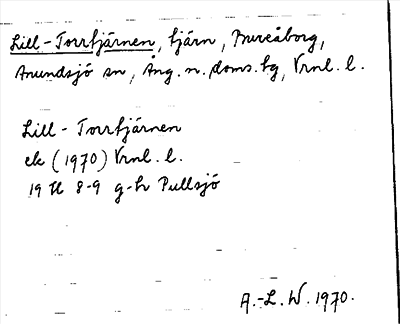 Lill-Torrtjärnen, tjärn, Mureåborg,
Anundsjö sn, Ång. n. doms. tg, Vrnl. l.
Lill-Torrtjärnen
ek (1970) Vrnl. l.
19 H 8-9 g-h Pullsjö
A.-L. W. 1970.